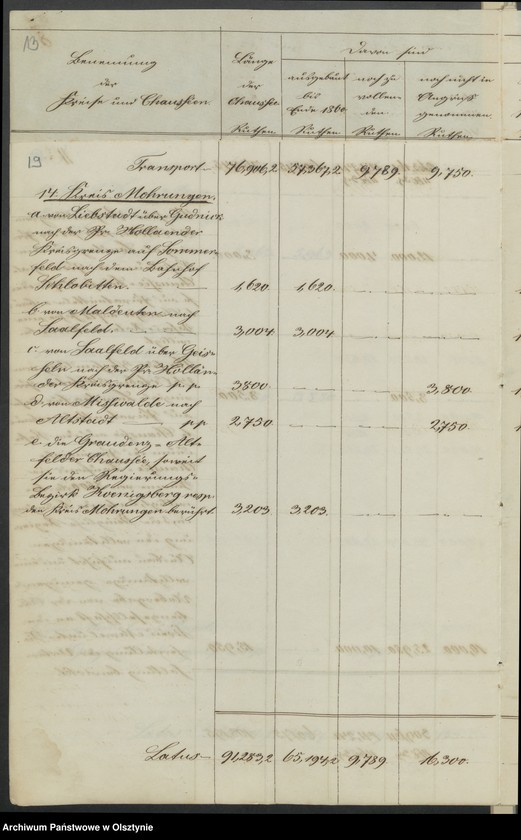 13
Benennung
der
Kreise und Chausseen.
Länge
der
Chaussee
Ruthen.
Davon sind
ausgebaut
bis
Ende 1860
Ruthen.
noch zu
vollen
den
Ruthen.
noch nicht in
Angriff
genommen
Ruthen.
19
Transport 76,906,2 9,789. 9,750.
14. Kreis Mohrungen.
a von Liebstadt über
nach der Pr. Hollaender
Kreisgrenze auf Sommer
feld nach dem Bahnhof
Schlobitten. 1,620. 1,620.
b von Maldeuten nach
Saalfeld. 3,004 3,004
c von Saalfeld über Geis=
seln nach der Pr. Hollän=
der Kreisgrenze p.p. 3,800. 3,800.
d. von Miswalde nach
Altstadt pp 2750. 2750.
e. die Graudenz-Alt
felder Chaussee, soweit
sie den Regierungs=
Bezirk Koenigsberg resp.
den Kreis Mohrungen berührt 3,203. 3,203.
Latus 91,283,2 65,194,2 9,789 16,300.
Archiwum Państwowe w Olsztynie